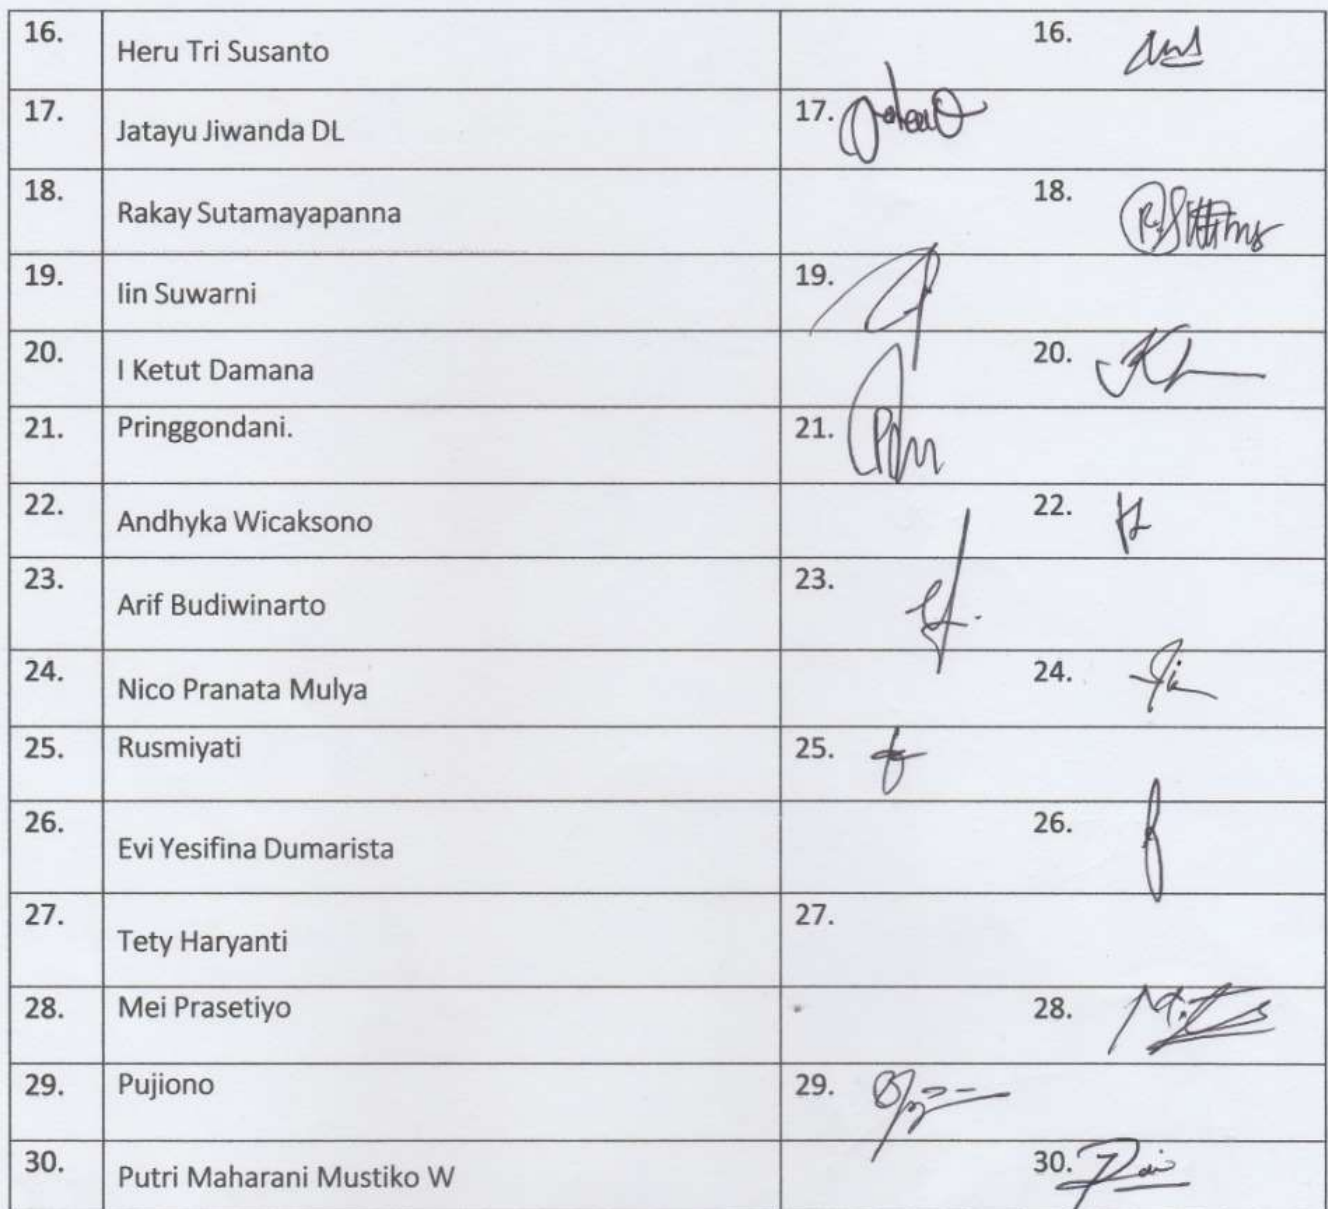 16. Heru Tri Susanto 16.
17. Jatayu Jiwanda DL 17.
18. Rakay Sutamayapanna 18.
19. Iin Suwarni 19.
20. I Ketut Damana 20.
21. Pringgondani. 21.
22. Andhyka Wicaksono 22.
23. Arif Budiwinarto 23.
24. Nico Pranata Mulya 24.
25. Rusmiyati 25.
26. Evi Yesifina Dumarista 26.
27. Tety Haryanti 27.
28. Mei Prasetiyo 28.
29. Pujiono 29.
30. Putri Maharani Mustiko W 30.